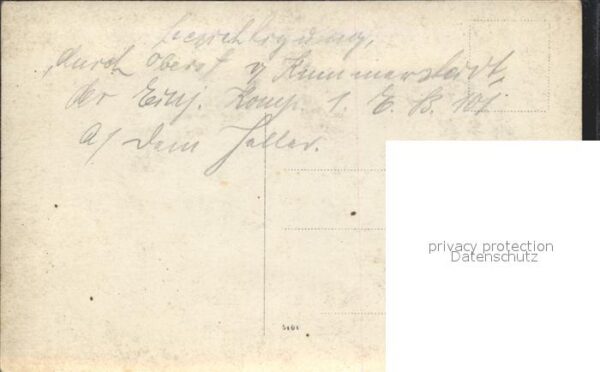 Besichtigung,
durch Oberst v Kummerstadt,
der Einj. Komp. 1. E. B. 101
a/ dem Heller.
privacy protection
Datenschutz